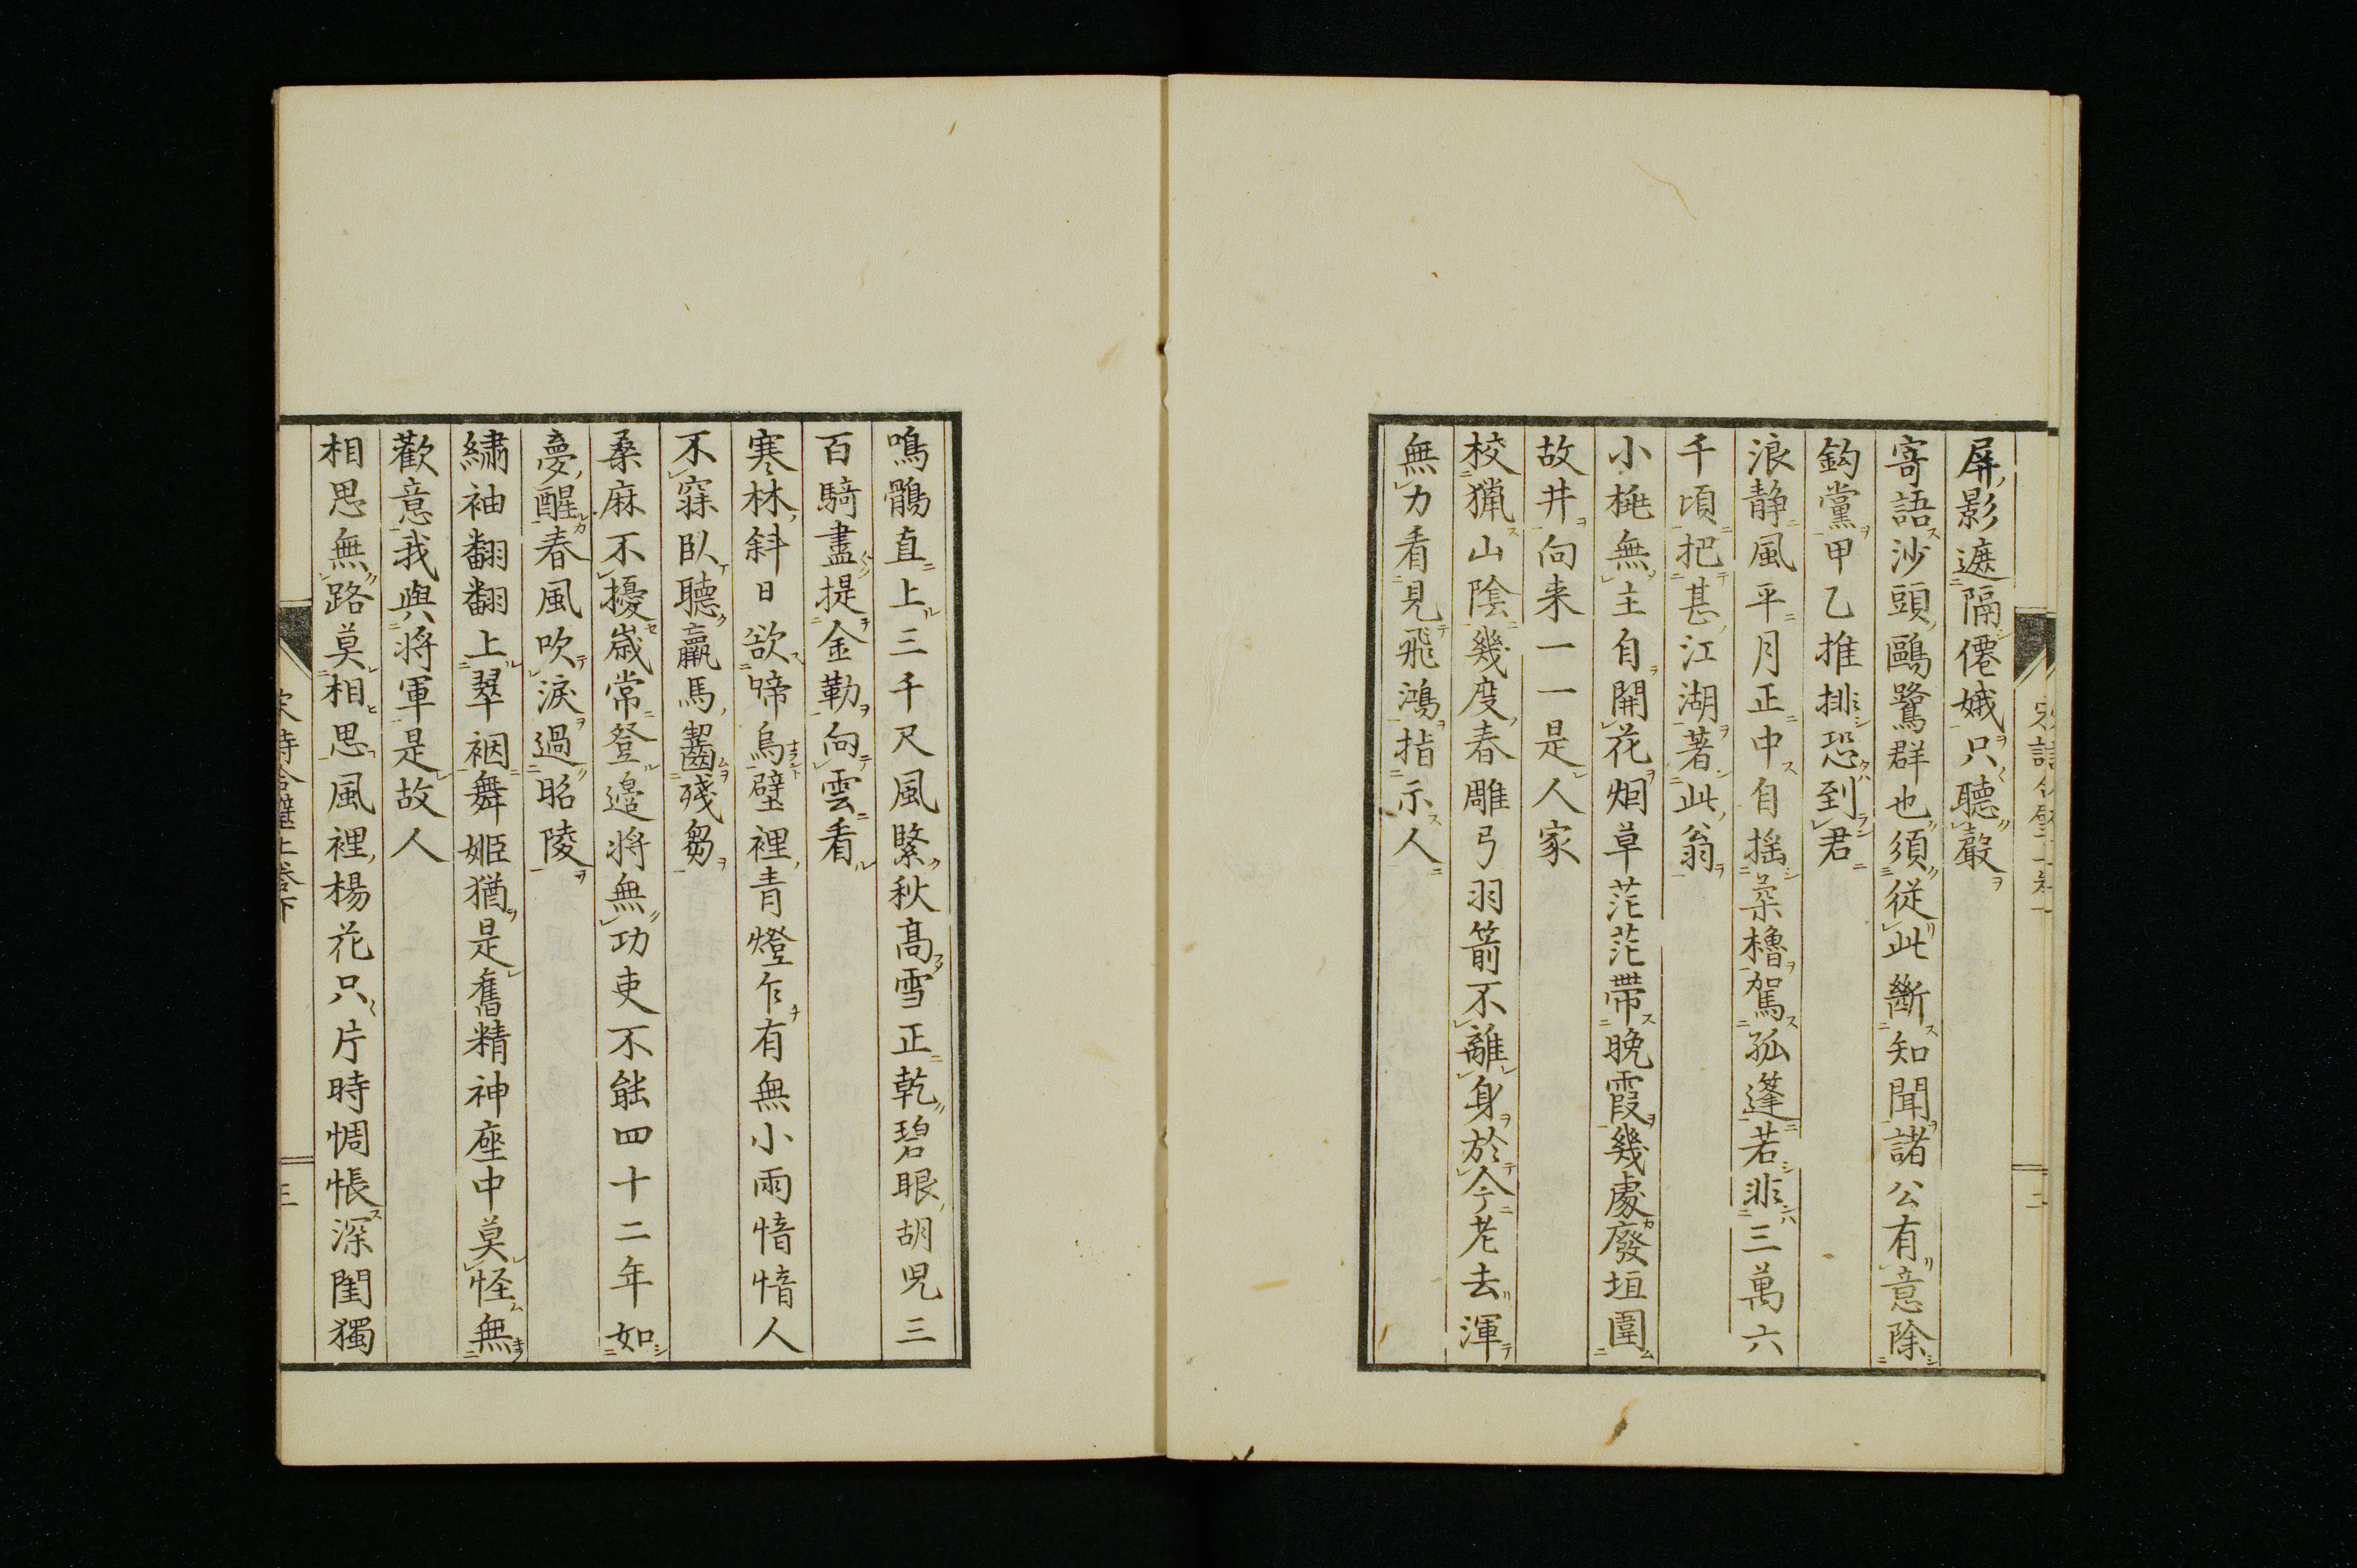 屏影遮隔僊娥只聽聲
寄語沙頭鷗鷺群也須從此斷知聞諸公有意除
鈎黨甲乙推排恐到君
浪静風平月正中自搖柔櫓駕孤蓬若非三萬六
千頃把甚江湖著此翁
小桃無主自開花烟草茫茫帶晚霞幾處廢垣圍
故井向来一一是人家
校獵山陰幾度春雕弓羽箭不離身於今老去渾
無力看見飛鴻指示人
鳴鶻直上三千尺風緊秋高雪正乾碧眼胡児三
百騎盡提金勒向雲看
寒林斜日欲啼烏壁裡青燈乍有無小雨愔愔人
不寐臥聽羸馬齧殘芻
桑麻不擾歳常登邉将無功吏不能四十二年如
夢醒春風吹淚過昭陵
繡袖翻翻上翠裀舞姬猶是舊精神座中莫怪無
歡意我與将軍是故人
相思無路莫相思風裡楊花只片時惆悵深閨獨